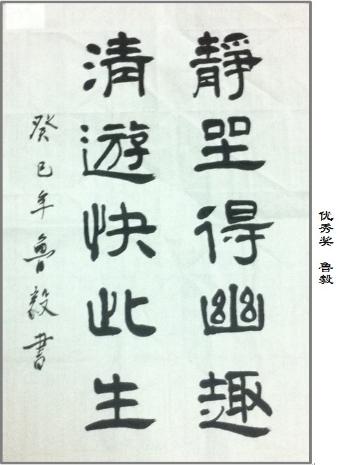 靜坐得幽趣
清遊快此生
癸巳年魯毅書
优秀奖 鲁毅